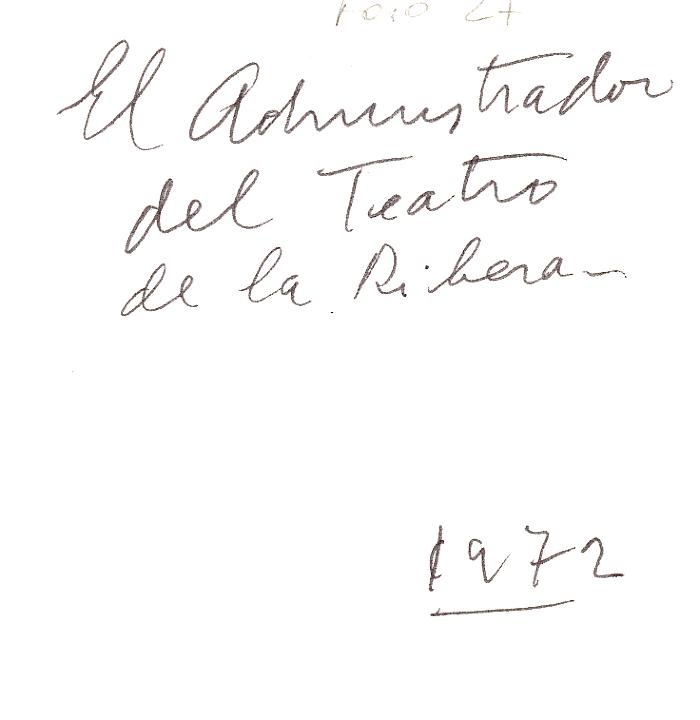 Foto 27
El Administrador
del Teatro
de la Ribera
1972